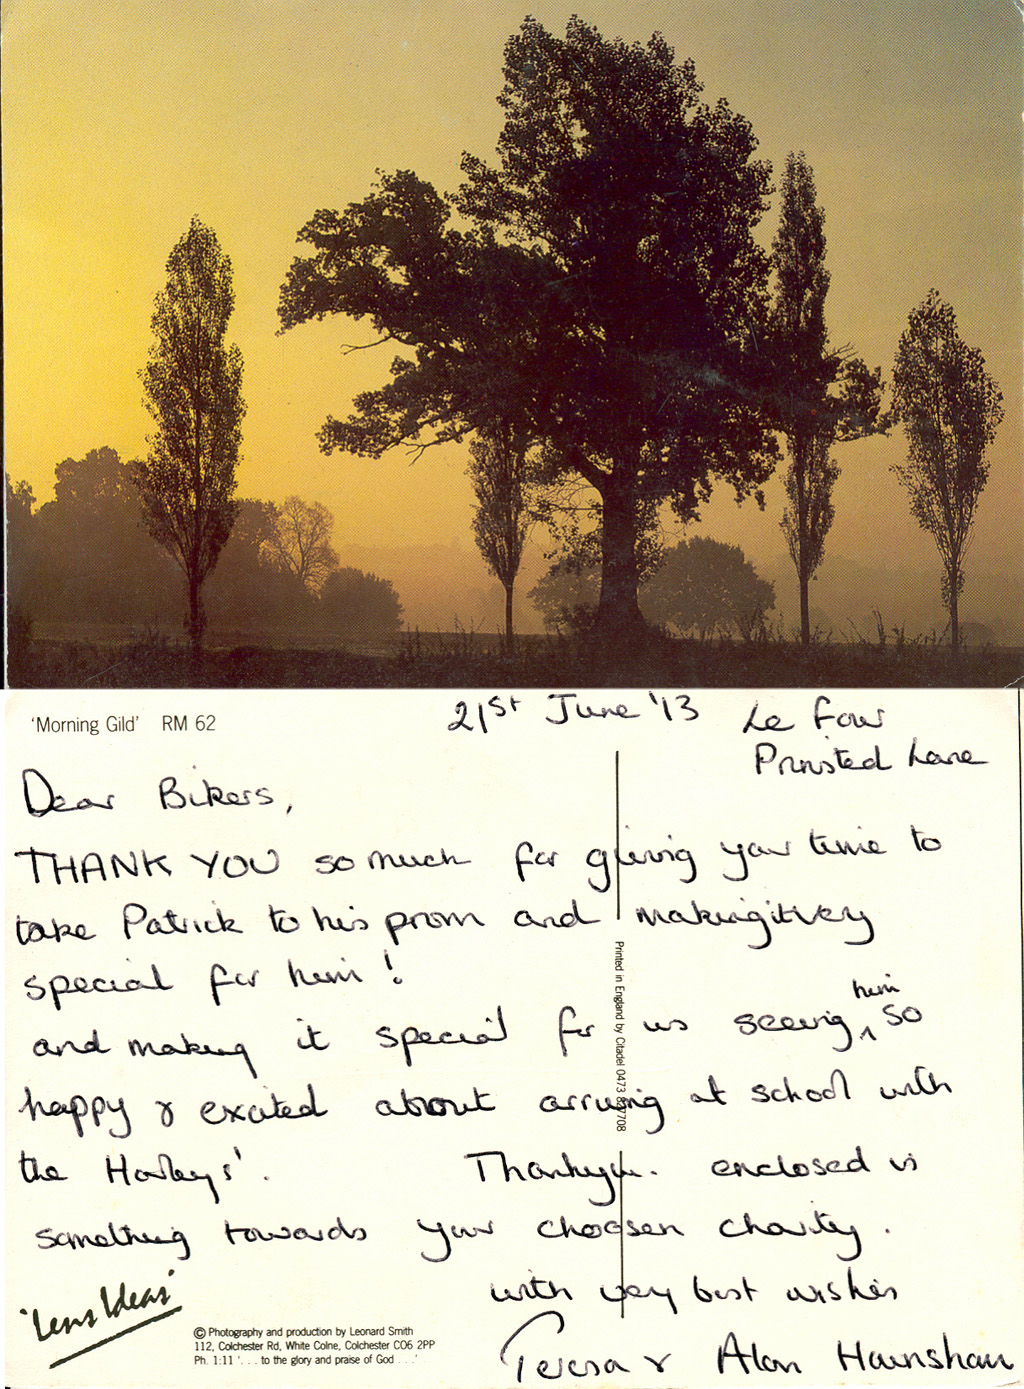 'Morning Gild' RM 62
21st June '13
Le Four
Prinsted Lane
Dear Bikers,
THANK YOU so much for giving your time to
take Patrick to his prom and making it very
special for him!
and making it special for us seeing him so
happy & excited about arriving at school with
the Harleys'. Thankyou. enclosed is
something towards your choosen charity.
with very best wishes
Teresa & Alan
Printed in England by Citadel 0473
'Lens Ideas'
© Photography and production by Leonard Smith
112, Colchester Rd, White Colne, Colchester CO6 2PP
Ph. 1:11 '. . . to the glory and praise of God . . .'